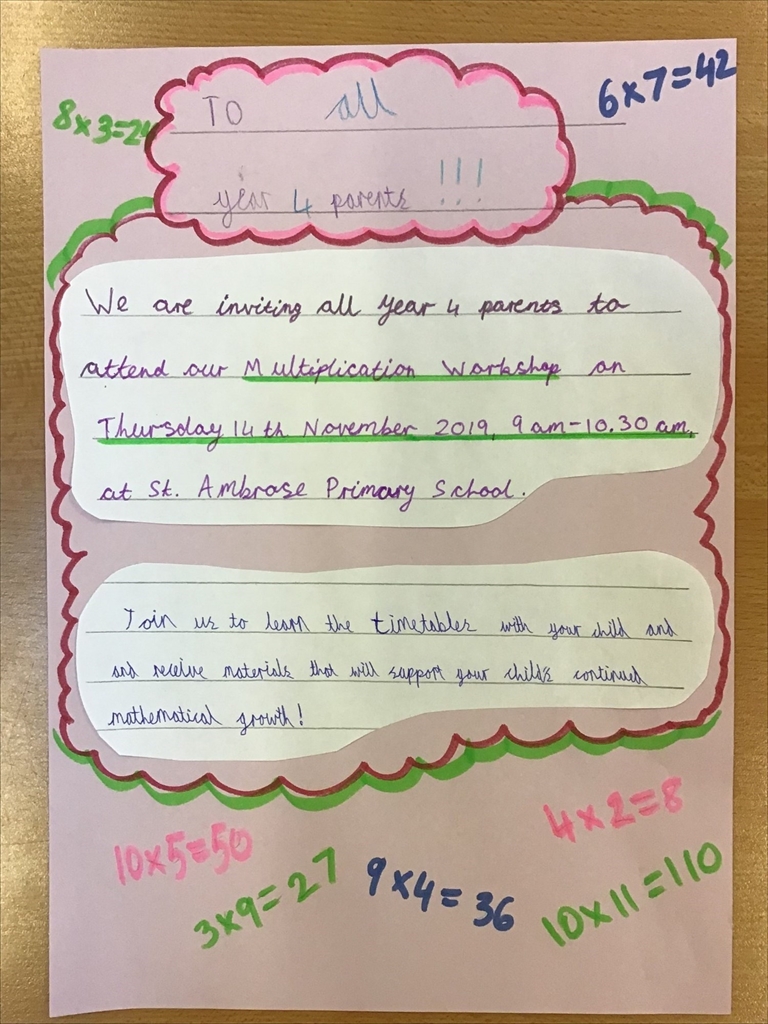 8x3=24
6x7=42
TO all
year 4 parents !!!
We are inviting all year 4 parents to
attend our Multiplication Workshop on
Thursday 14th November 2019, 9am-10.30am,
at St. Ambrose Primary School.
Join us to learn the timetables with your child and
and receive materials that will support your child's continued
mathematical growth!
10x5=50
4x2=8
3x9=27
9x4=36
10x11=110